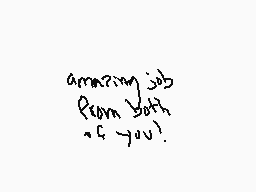 amazing job
from both
of you!